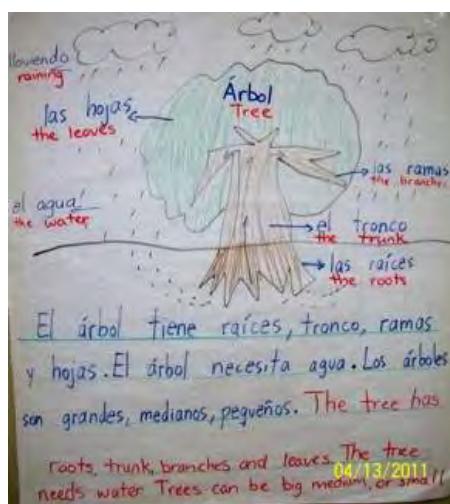 lloviendo
raining
Árbol
Tree
las hojas
the leaves
las ramas
the branches
el agua
the water
el tronco
the trunk
las raíces
the roots
El árbol tiene raíces, tronco, ramas
y hojas. El árbol necesita agua. Los árboles
son grandes, medianos, pequeños. The tree has
roots, trunk, branches and leaves. The tree
needs water Trees can be big medium, or small
04/13/2011